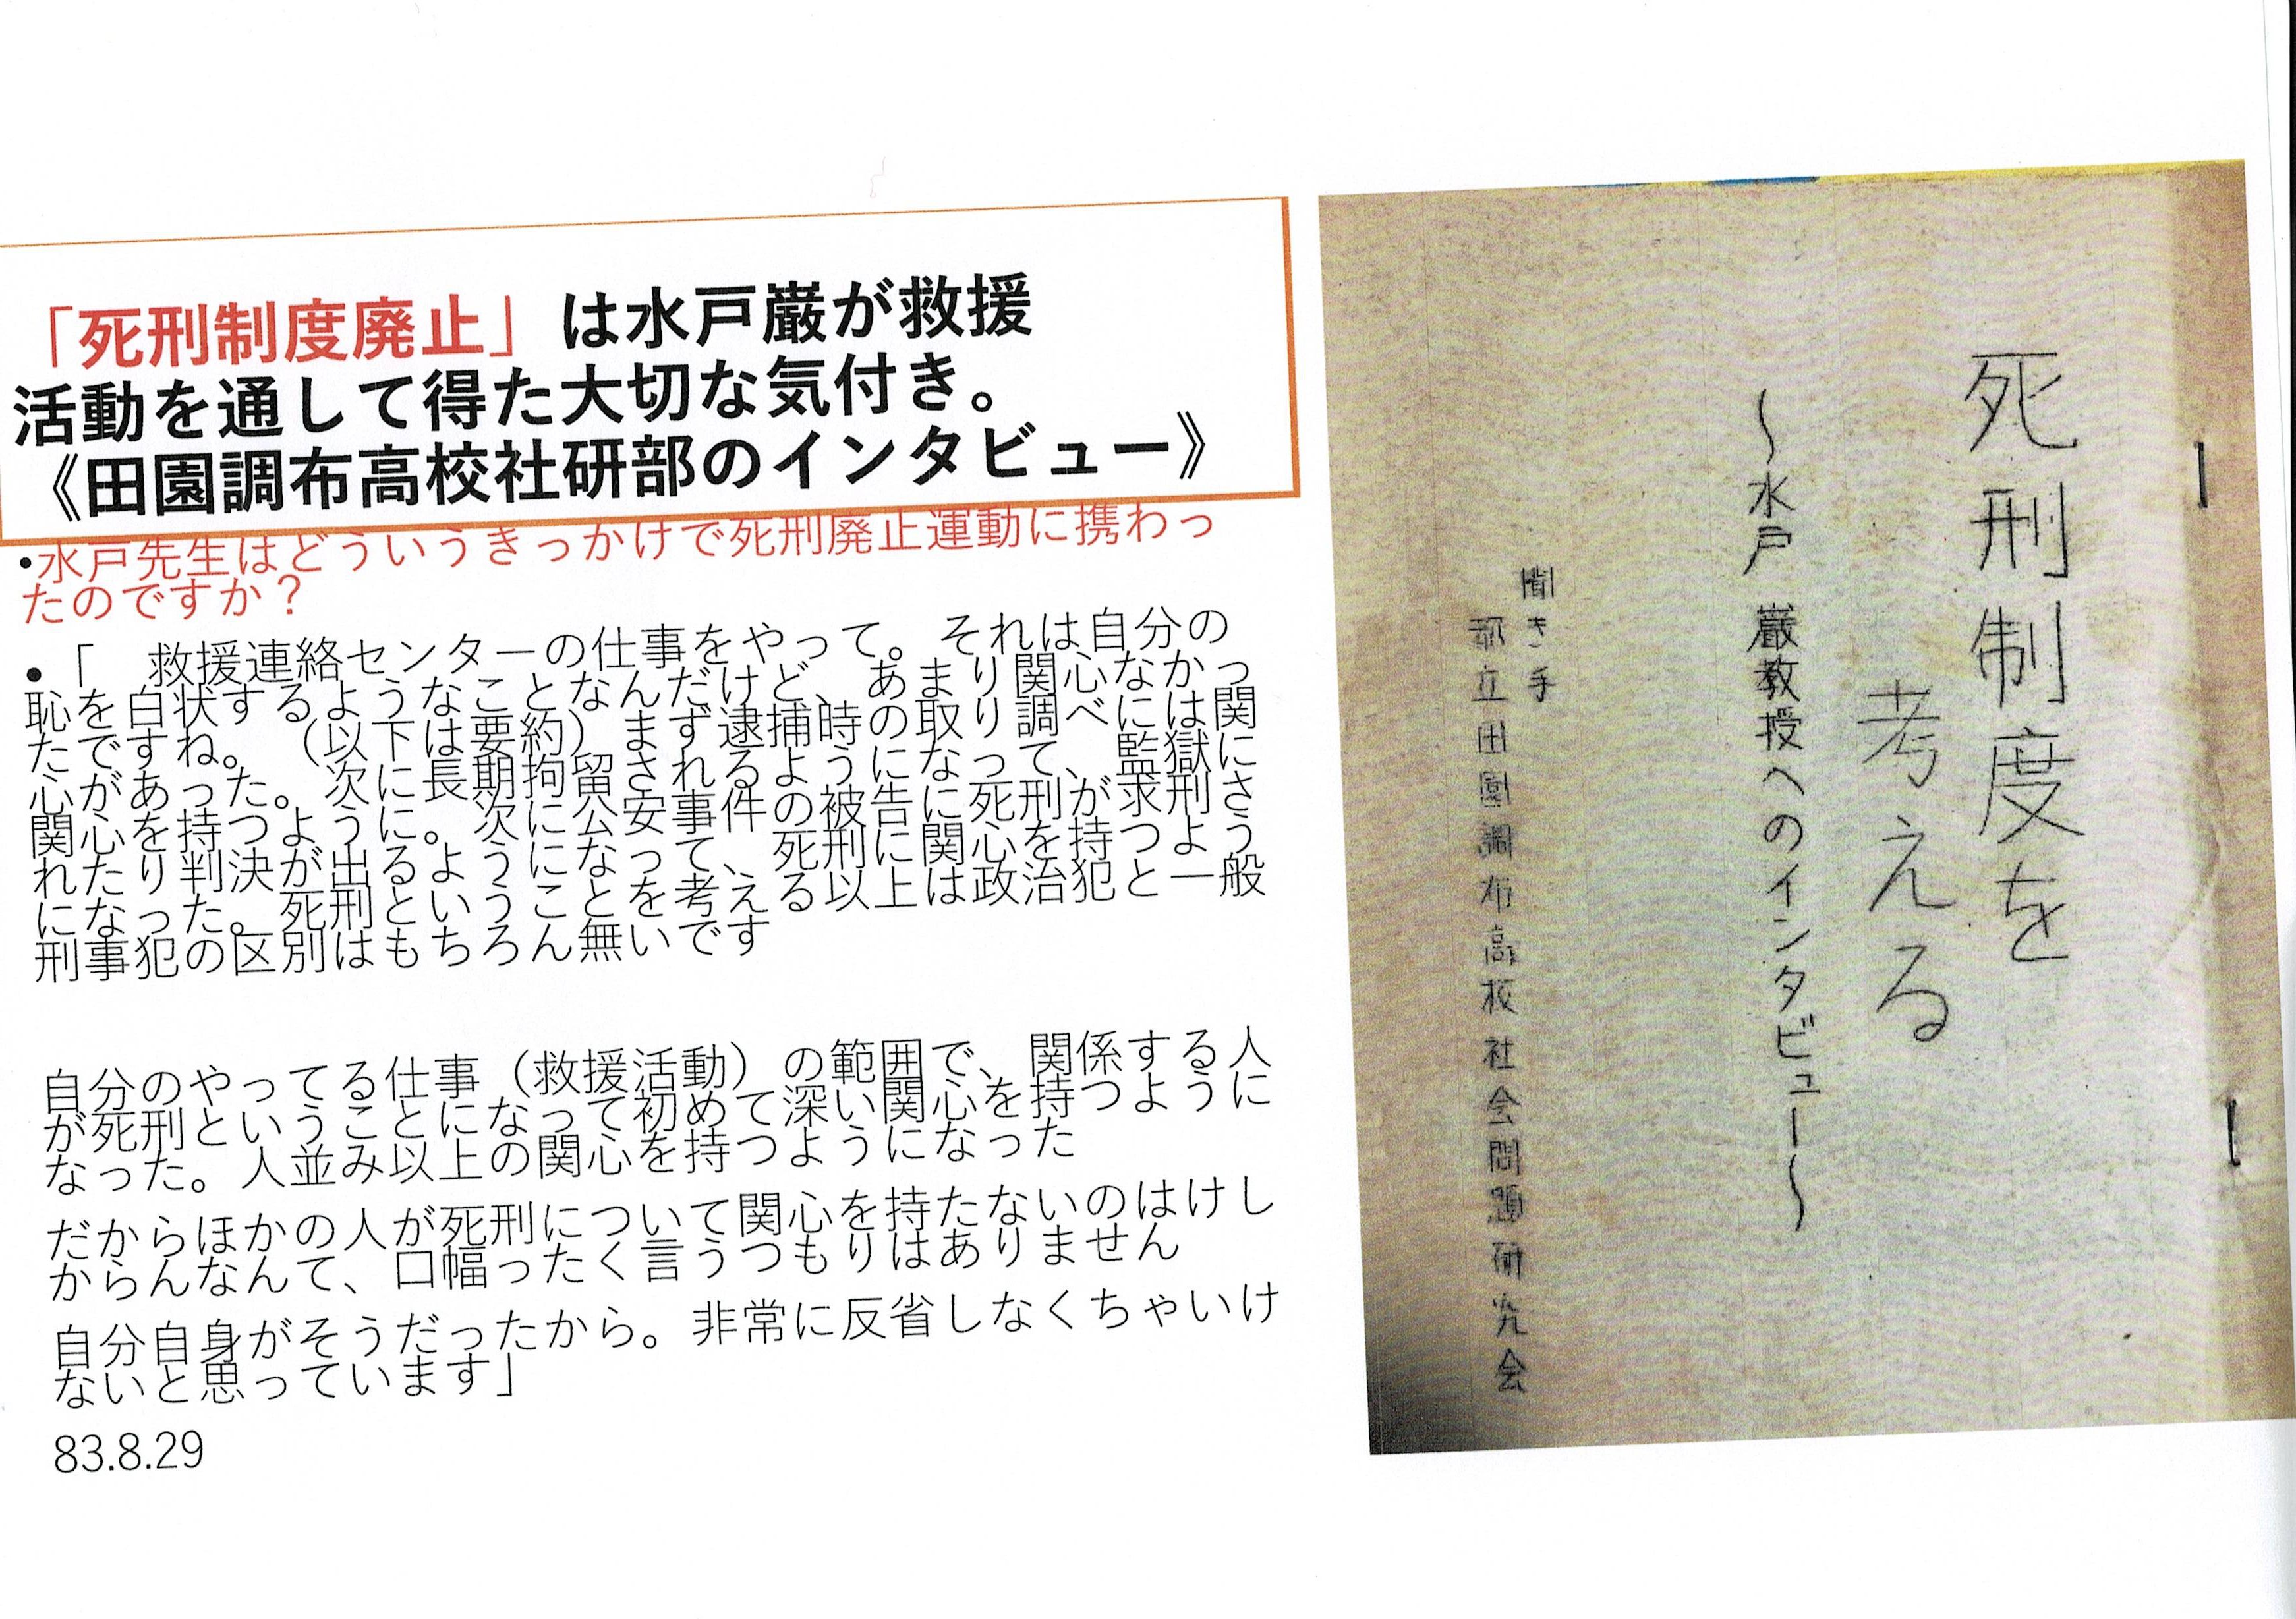 「死刑制度廃止」は水戸巌が救援
活動を通して得た大切な気付き。
《田園調布高校社研部のインタビュー》
•水戸先生はどういうきっかけで死刑廃止運動に携わっ
たのですか？
•「　救援連絡センターの仕事をやって。それは自分の
恥を白状するようなことなんだけど、あまり関心なかっ
たですね。（以下は要約）まず逮捕時の取り調べには関
心があった。次に長期拘留されるようになって、監獄に
関心を持つように。次に公安事件の被告に死刑が求刑さ
れたり判決が出るようになって、死刑に関心を持つよう
になった。死刑ということを考える以上は政治犯と一般
刑事犯の区別はもちろん無いです
自分のやってる仕事（救援活動）の範囲で、関係する人
が死刑ということになって初めて深い関心を持つように
なった。人並み以上の関心を持つようになった
だからほかの人が死刑について関心を持たないのはけし
からんなんて、口幅ったく言うつもりはありません
自分自身がそうだったから。非常に反省しなくちゃいけ
ないと思っています」
83.8.29
死刑制度を
考える
〜水戸 巌教授へのインタビュー〜
聞き手
都立田園調布高校社会問題研究会